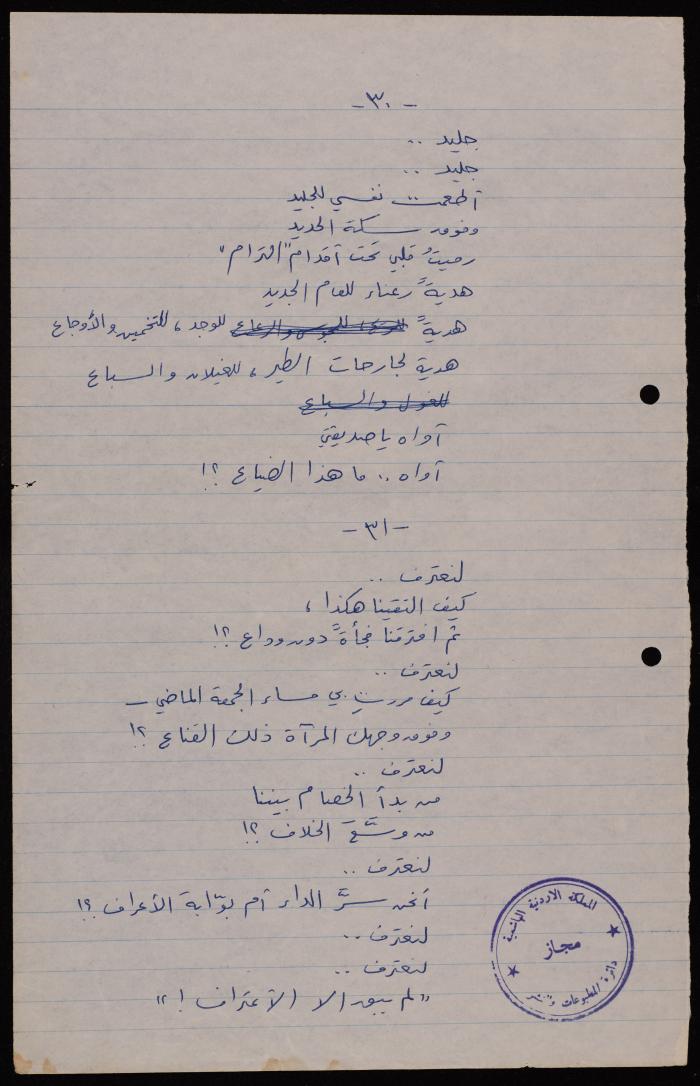 -٣٠-
جليد ..
جليد ..
أطعمت نفسي للجليد
وفوق سكة الحديد
رميتُ قلبي تحت أقدام "الترام"
هديةً رعناء للعام الجديد
هديةً للوجد، للتخمين والأوجاع
هدية لجارحات الطير، للغيلان والسباع
للغول والسباع
آواه يا صديقتي
آواه .. ما هذا الضياع ؟!
-٣١-
لنعترف ..
كيف التقينا هكذا ،
ثم افترقنا فجأةً دون وداع ؟!
لنعترف ..
كيف مررتِ بي مساء الجمعة الماضي -
وفوق وجهك المرآة ذلك القناع ؟!
لنعترف ..
من بدأ الخصام بيننا
من وسَّعَ الخلاف ؟!
لنعترف ..
أنحن سرَّ الداء أم بوّابة الأعراف ؟!
لنعترف ..
لنعترف ..
"لم يبق الا الاعتراف !"
المملكة الاردنية الهاشمية
مجاز
دائرة المطبوعات والنشر